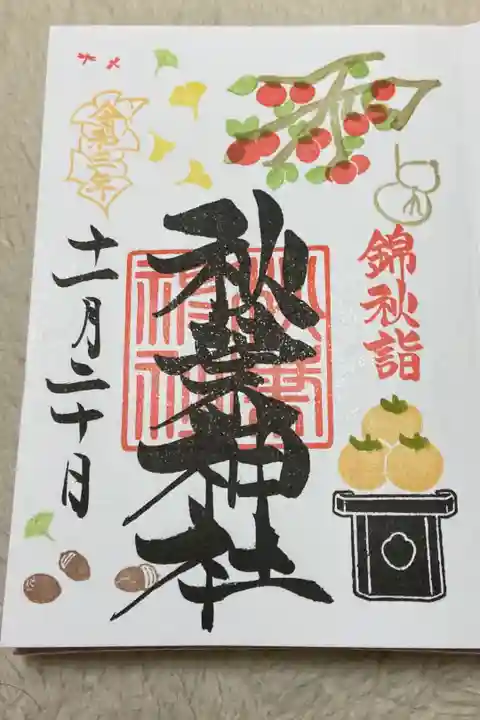 錦秋詣
秋葉神社
秋葉
神社
令和三年
十一月二十日